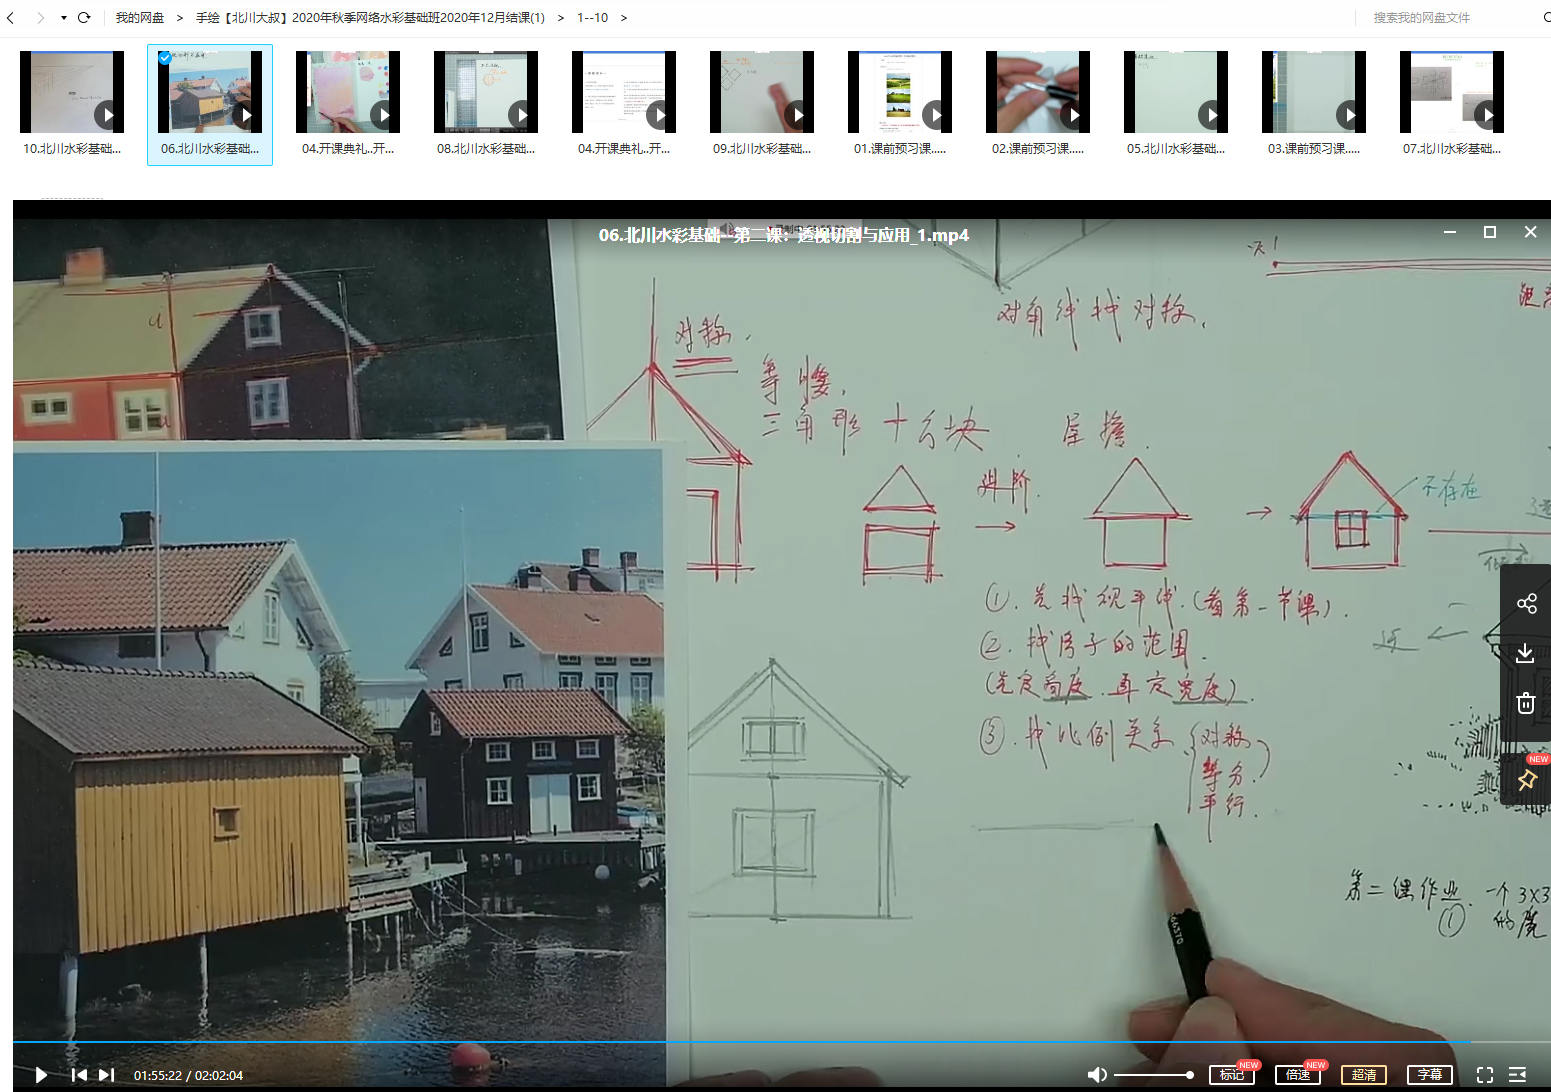 我的网盘 > 手绘【北川大叔】2020年秋季网络水彩基础班2020年12月结课(1) > 1--10 >
搜索我的网盘文件
10.北川水彩基础...
06.北川水彩基础...
04.开课典礼..开...
08.北川水彩基础...
04.开课典礼..开...
09.北川水彩基础...
01.课前预习课.....
02.课前预习课.....
05.北川水彩基础...
03.课前预习课.....
07.北川水彩基础...
06.北川水彩基础--第二课：透视切割与应用_1.mp4
对角线找对称.
对称.
等腰.
三角形 十 方块
屋檐.
进阶.
不存在
①.先找视平线.(看第一节课).
②.找房子的范围.
(先定高度.再定宽度).
③.找比例关系(对称
等分.
平行.
近
第二课作业.一个3X3
①
的魔
NEW
01:55:22 / 02:02:04
标记
NEW
倍速
NEW
超清
字幕